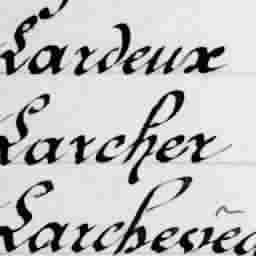 Lardeux
Larcher
Larchevêq